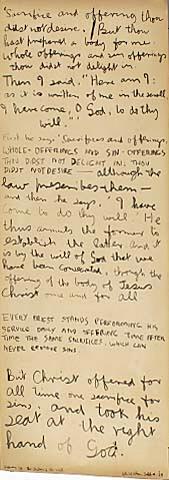 'Sacrifice and offering thou
didst not desire, / But thou
hast prepared a body for me.
Whole offerings and sin offerings
thou didst not delight in
Then I said, "Here am I:
as it is written of me in the scroll
I have come, O God, to do thy
will."'
First he says, 'Sacrifices and offerings,
WHOLE-OFFERINGS AND SIN-OFFERINGS
THOU DIDST NOT DELIGHT IN; THOU
DIDST NOT DESIRE — although the
law prescribes them —
and then he says, 'I have
come to do thy will.' He
thus annuls the former to
establish the latter. And it
is by the will of God that we
have been consecrated, through the
offering of the body of Jesus
Christ once and for all
EVERY PRIEST STANDS PERFORMING HIS
SERVICE DAILY AND OFFERING TIME AFTER
TIME THE SAME SACRIFICES, WHICH CAN
NEVER REMOVE SINS.
But Christ offered for
all time one sacrifice for
sins, and took his
seat at the right
hand of God.